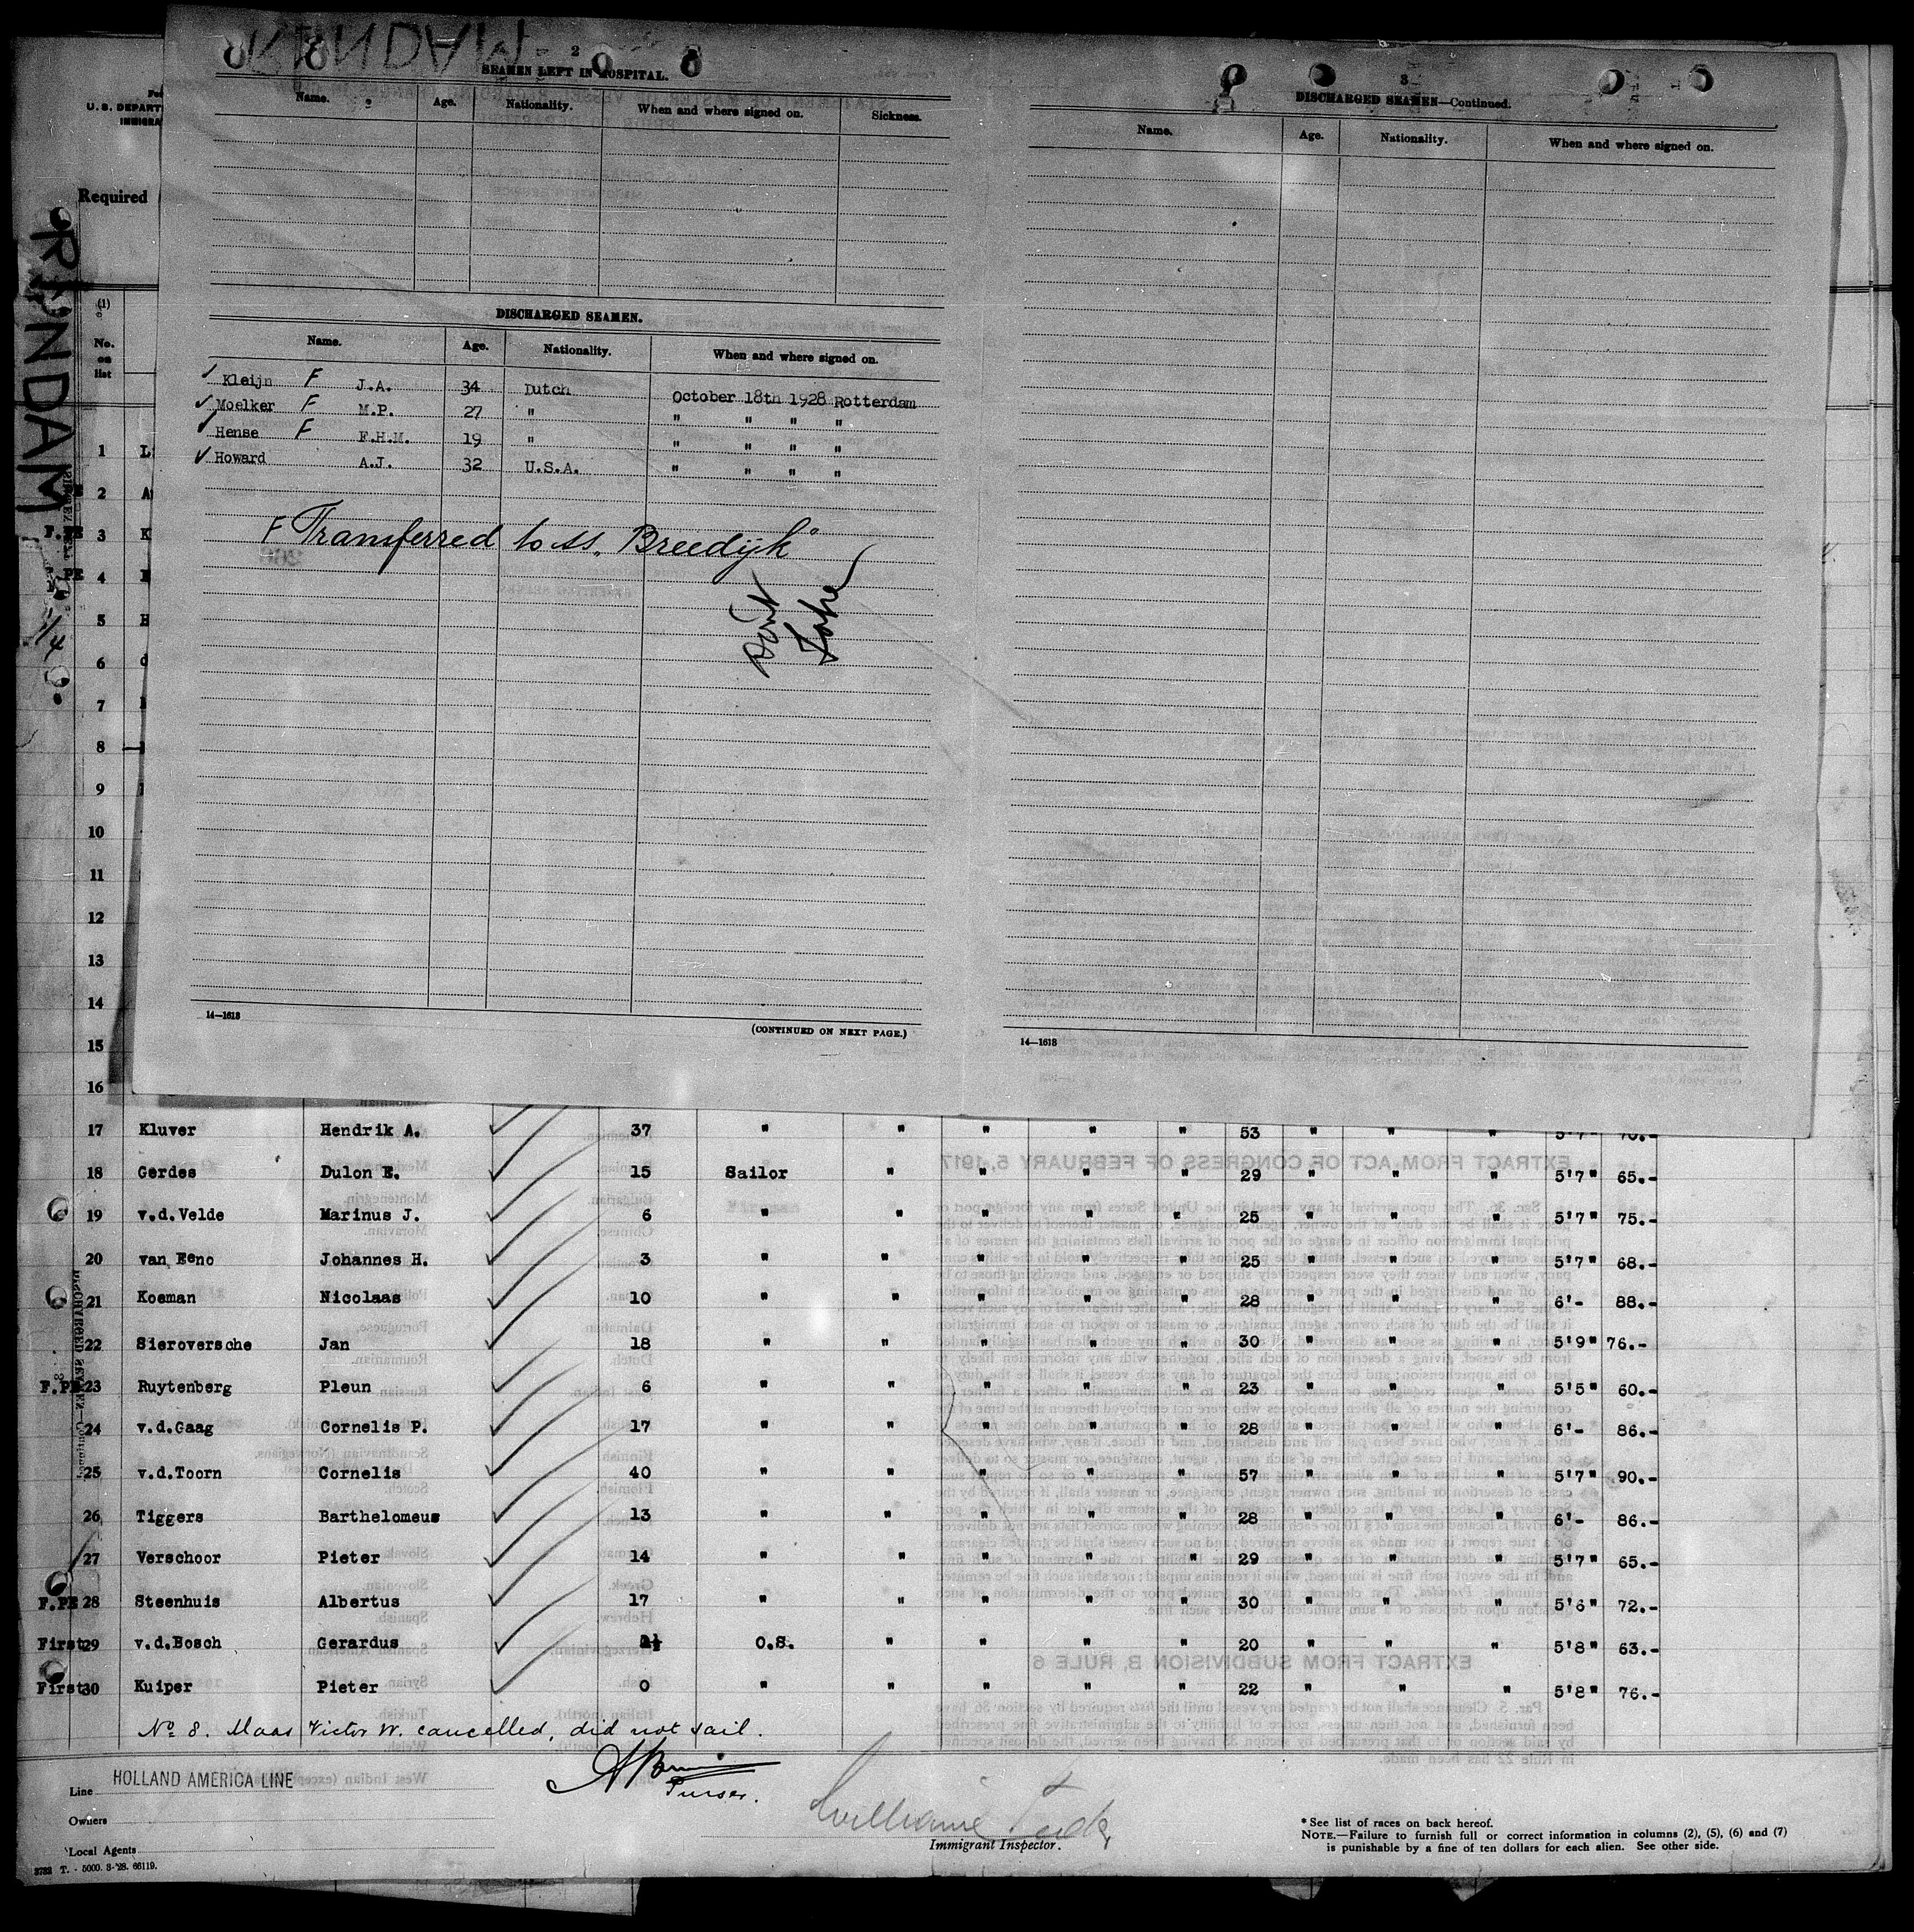 RYNDAM
2
SEAMEN LEFT IN HOSPITAL.
Name. Age. Nationality. When and where signed on. Sickness.
DISCHARGED SEAMEN.
Name. Age. Nationality. When and where signed on.
✓ Kleijn F J.A. 34 Dutch October 18th 1928 Rotterdam
✓ Moelker F M.P. 27 " " " " "
✓ Hense F F.H.M. 19 " " " " "
✓ Howard A.J. 32 U.S.A. " " " "
F Transferred to ss. "Breedijk"
14—1613
(CONTINUED ON NEXT PAGE.)
3
DISCHARGED SEAMEN—Continued.
Name. Age. Nationality. When and where signed on.
14—1613
U. S. DEPART
IMMIGRA
Required
RYNDAM
(1)
No. on list
1 L
2 A
F.PE 3 K
PE 4
5 H
6
7
8
9
10
11
12
13
14
15
16
17 Kluver Hendrik A. ✓ 37 " " " " " 53 " " " 5'7" 70.-
18 Gerdes Dulon E. ✓ 15 Sailor " " " " 29 " " " 5'7" 65.-
19 v.d.Velde Marinus J. ✓ 6 " " " " " 25 " " " 5'7" 75.-
20 van Eeno Johannes H. ✓ 3 " " " " " 25 " " " 5'7" 68.-
21 Koeman Nicolaas ✓ 10 " " " " " 28 " " " 6'- 88.-
22 Sieroversche Jan ✓ 18 " " " " " 30 " " " 5'9" 76.-
F.PE 23 Ruytenberg Pleun ✓ 6 " " " " " 23 " " " 5'5" 60.-
24 v.d.Gaag Cornelis P. ✓ 17 " " " " " 28 " " " 6'- 86.-
25 v.d.Toorn Cornelis ✓ 40 " " " " " 57 " " " 5'7" 90.-
26 Tiggers Barthelomeus ✓ 13 " " " " " 28 " " " 6'- 86.-
27 Verschoor Pieter ✓ 14 " " " " " 29 " " " 5'7" 65.-
F.PE 28 Steenhuis Albertus ✓ 17 " " " " " 30 " " " 5'6" 72.-
First 29 v.d.Bosch Gerardus ✓ O.S. " " " " 20 " " " 5'8" 63.-
First 30 Kuiper Pieter ✓ 0 " " " " " 22 " " " 5'8" 76.-
No 8. Maas Victor W. cancelled, did not sail.
Line HOLLAND AMERICA LINE
Purser.
Owners
William
Immigrant Inspector.
Local Agents
3732 T. - 5000. 3-'28. 66119.
* See list of races on back hereof.
NOTE.—Failure to furnish full or correct information in columns (2), (5), (6) and (7)
is punishable by a fine of ten dollars for each alien. See other side.